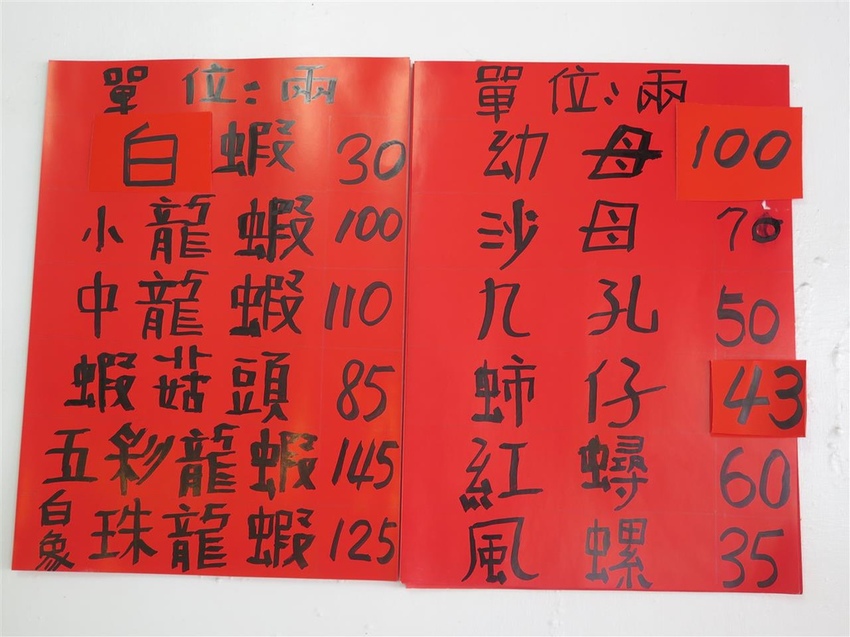 單位:兩
白蝦 30
小龍蝦 100
中龍蝦 110
蝦菇頭 85
五彩龍蝦 145
白象珠龍蝦 125
單位:兩
幼母 100
沙母 70
九孔 50
蛳仔 43
紅蟳 60
風螺 35